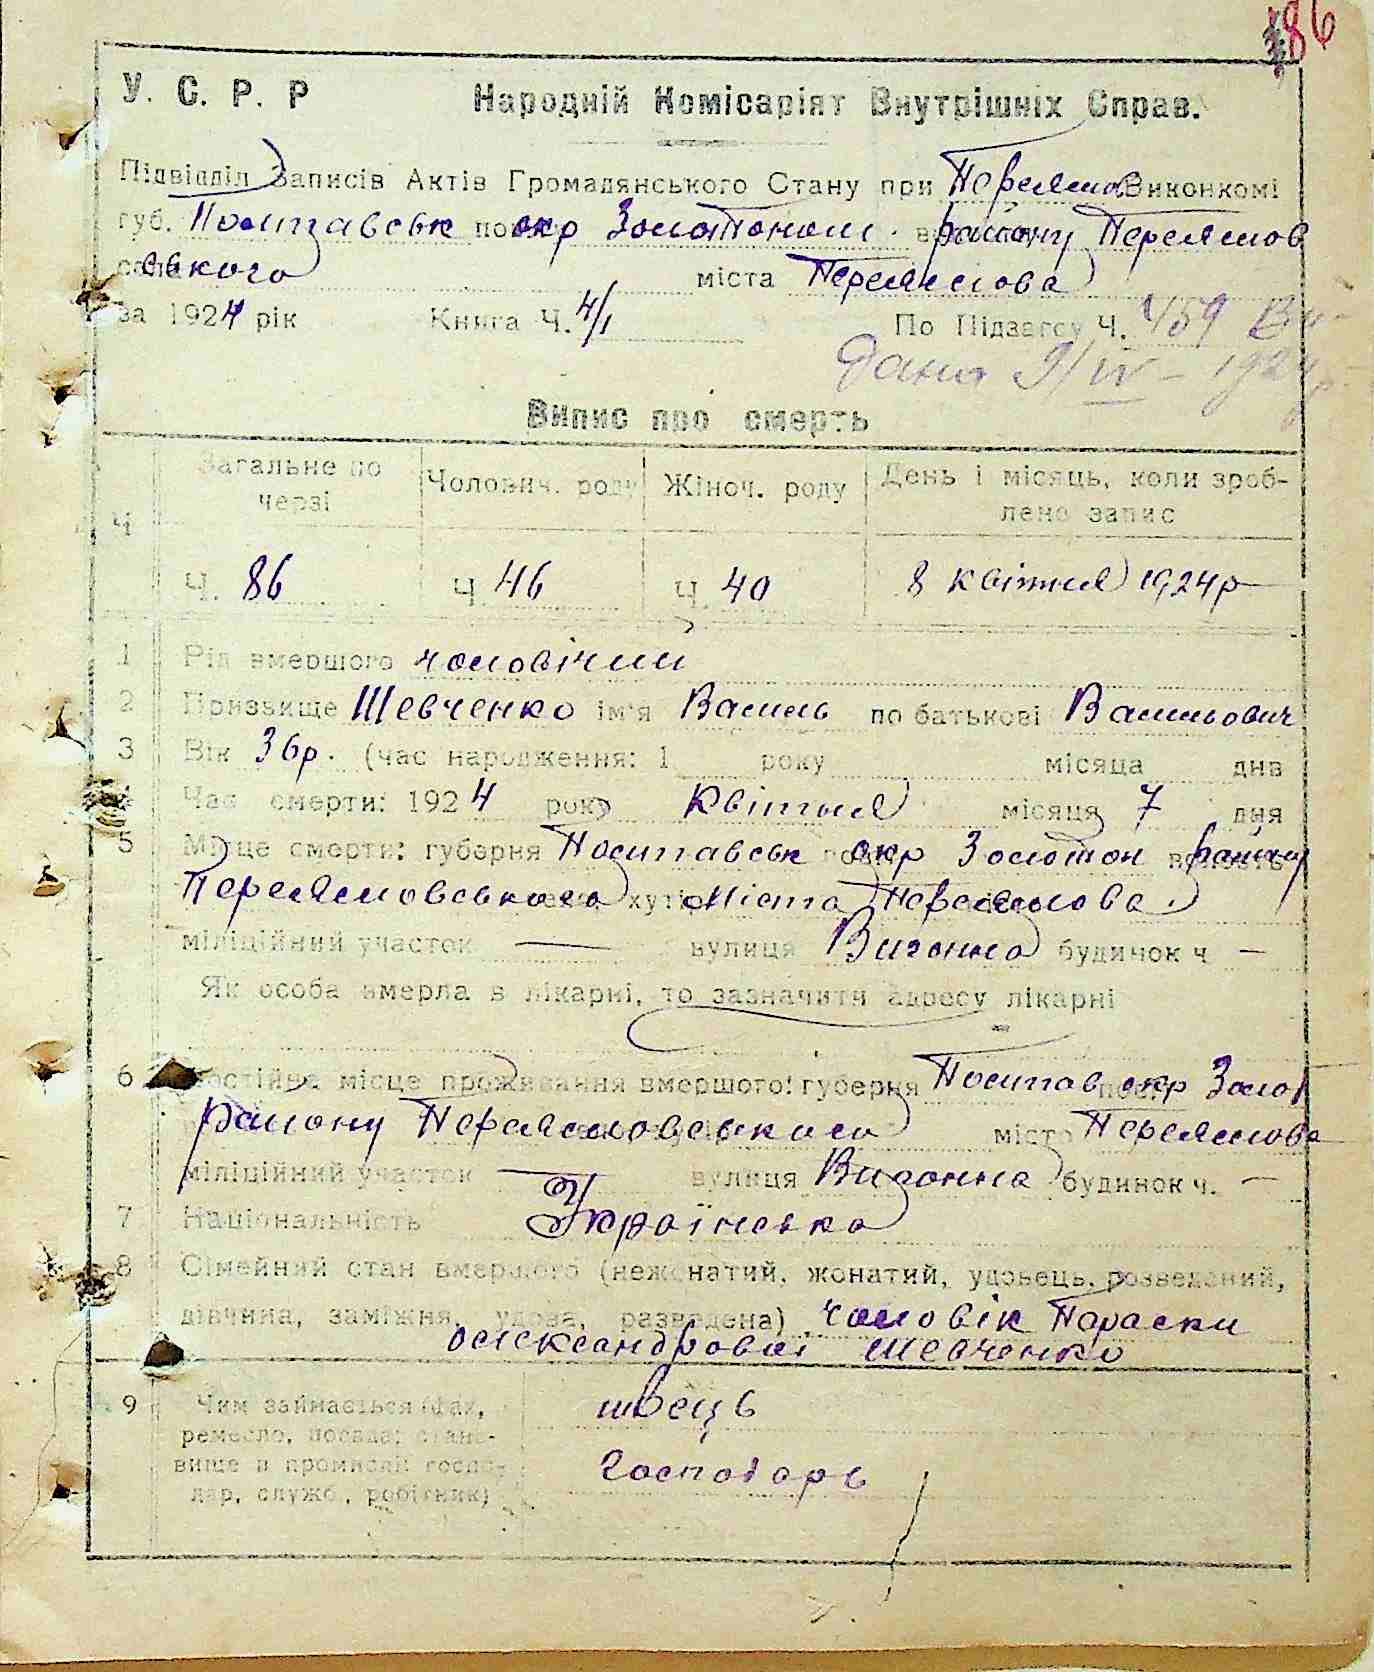 86
У. С. Р. Р Народній Комісаріят Внутрішніх Справ.
Підвідділ Записів Актів Громадянського Стану при Переяслов. Виконкомі
губ. Полтавськ окр Золотоноськ. району Переяслов
ського міста Переяслова
за 1924 рік Книга Ч. 4/1 По Підзагсу Ч. 459 Ви-
дана 9/IV - 1924 р.
Випис про смерть
Ч Загальне по черзі Чолович. роду Жіноч. роду День і місяць, коли зроб-
лено запис
Ч. 86 Ч 46 Ч. 40 8 Квітня 1924р
1 Рід вмершого чоловічий
2 Призвище Шевченко ім'я Василь по батькові Васильович
3 Вік 36р. (час народження: 1 року місяца дня
4 Час смерти: 1924 року Квітня місяця 7 дня
5 Місце смерти: губерня Полтавськ окр Золотон волость району
Переяславського хутір міста Переяслова
міліційний участок — вулиця Вигонна будинок ч —
Як особа вмерла в лікарні, то зазначити адресу лікарні
—
6 Постійне місце проживання вмершого: губерня Полтав окр Золот
району Переясловського місто Переяслова
міліційний участок — вулиця Вигонна будинок ч. —
7 Національність Українська
8 Сімейний стан вмершого (нежонатий, жонатий, удовець, розведений,
дівчина, заміжня, удова, разведена) чоловік Параски
Олександрової Шевченко
9 Чим займається (фах, швець
ремесло, посада; стано-
вище в промислі: госпо- Господарь
дар, служб., робітник)